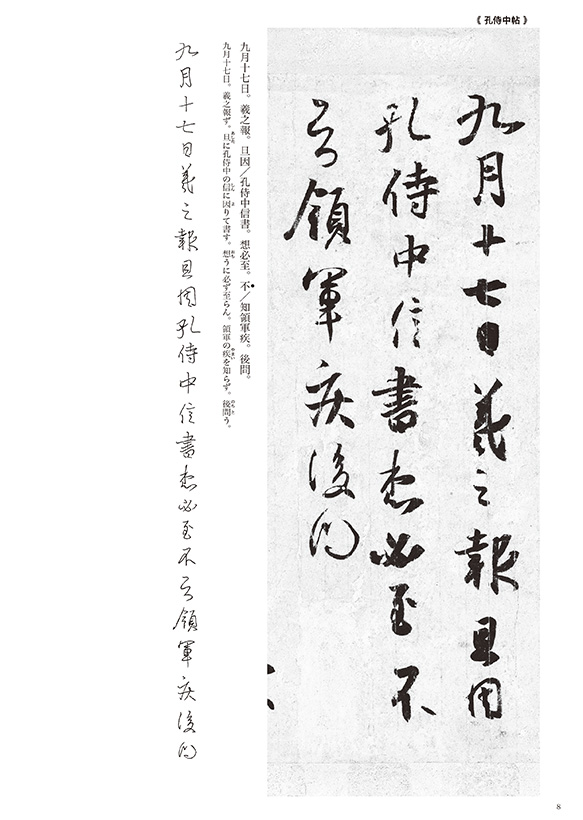 《 孔侍中帖 》
九月十七日羲之報旦因
孔侍中信書想必至不
知領軍疾後問
九月十七日。羲之報。旦因／孔侍中信書。想必至。不／知領軍疾。後問。
九月十七日。羲之報ず。旦に孔侍中の信に因りて書す。想うに必ず至らん。領軍の疾を知らず。後問う。
九月十七日羲之報旦因孔侍中信書想必至不知領軍疾後問
8